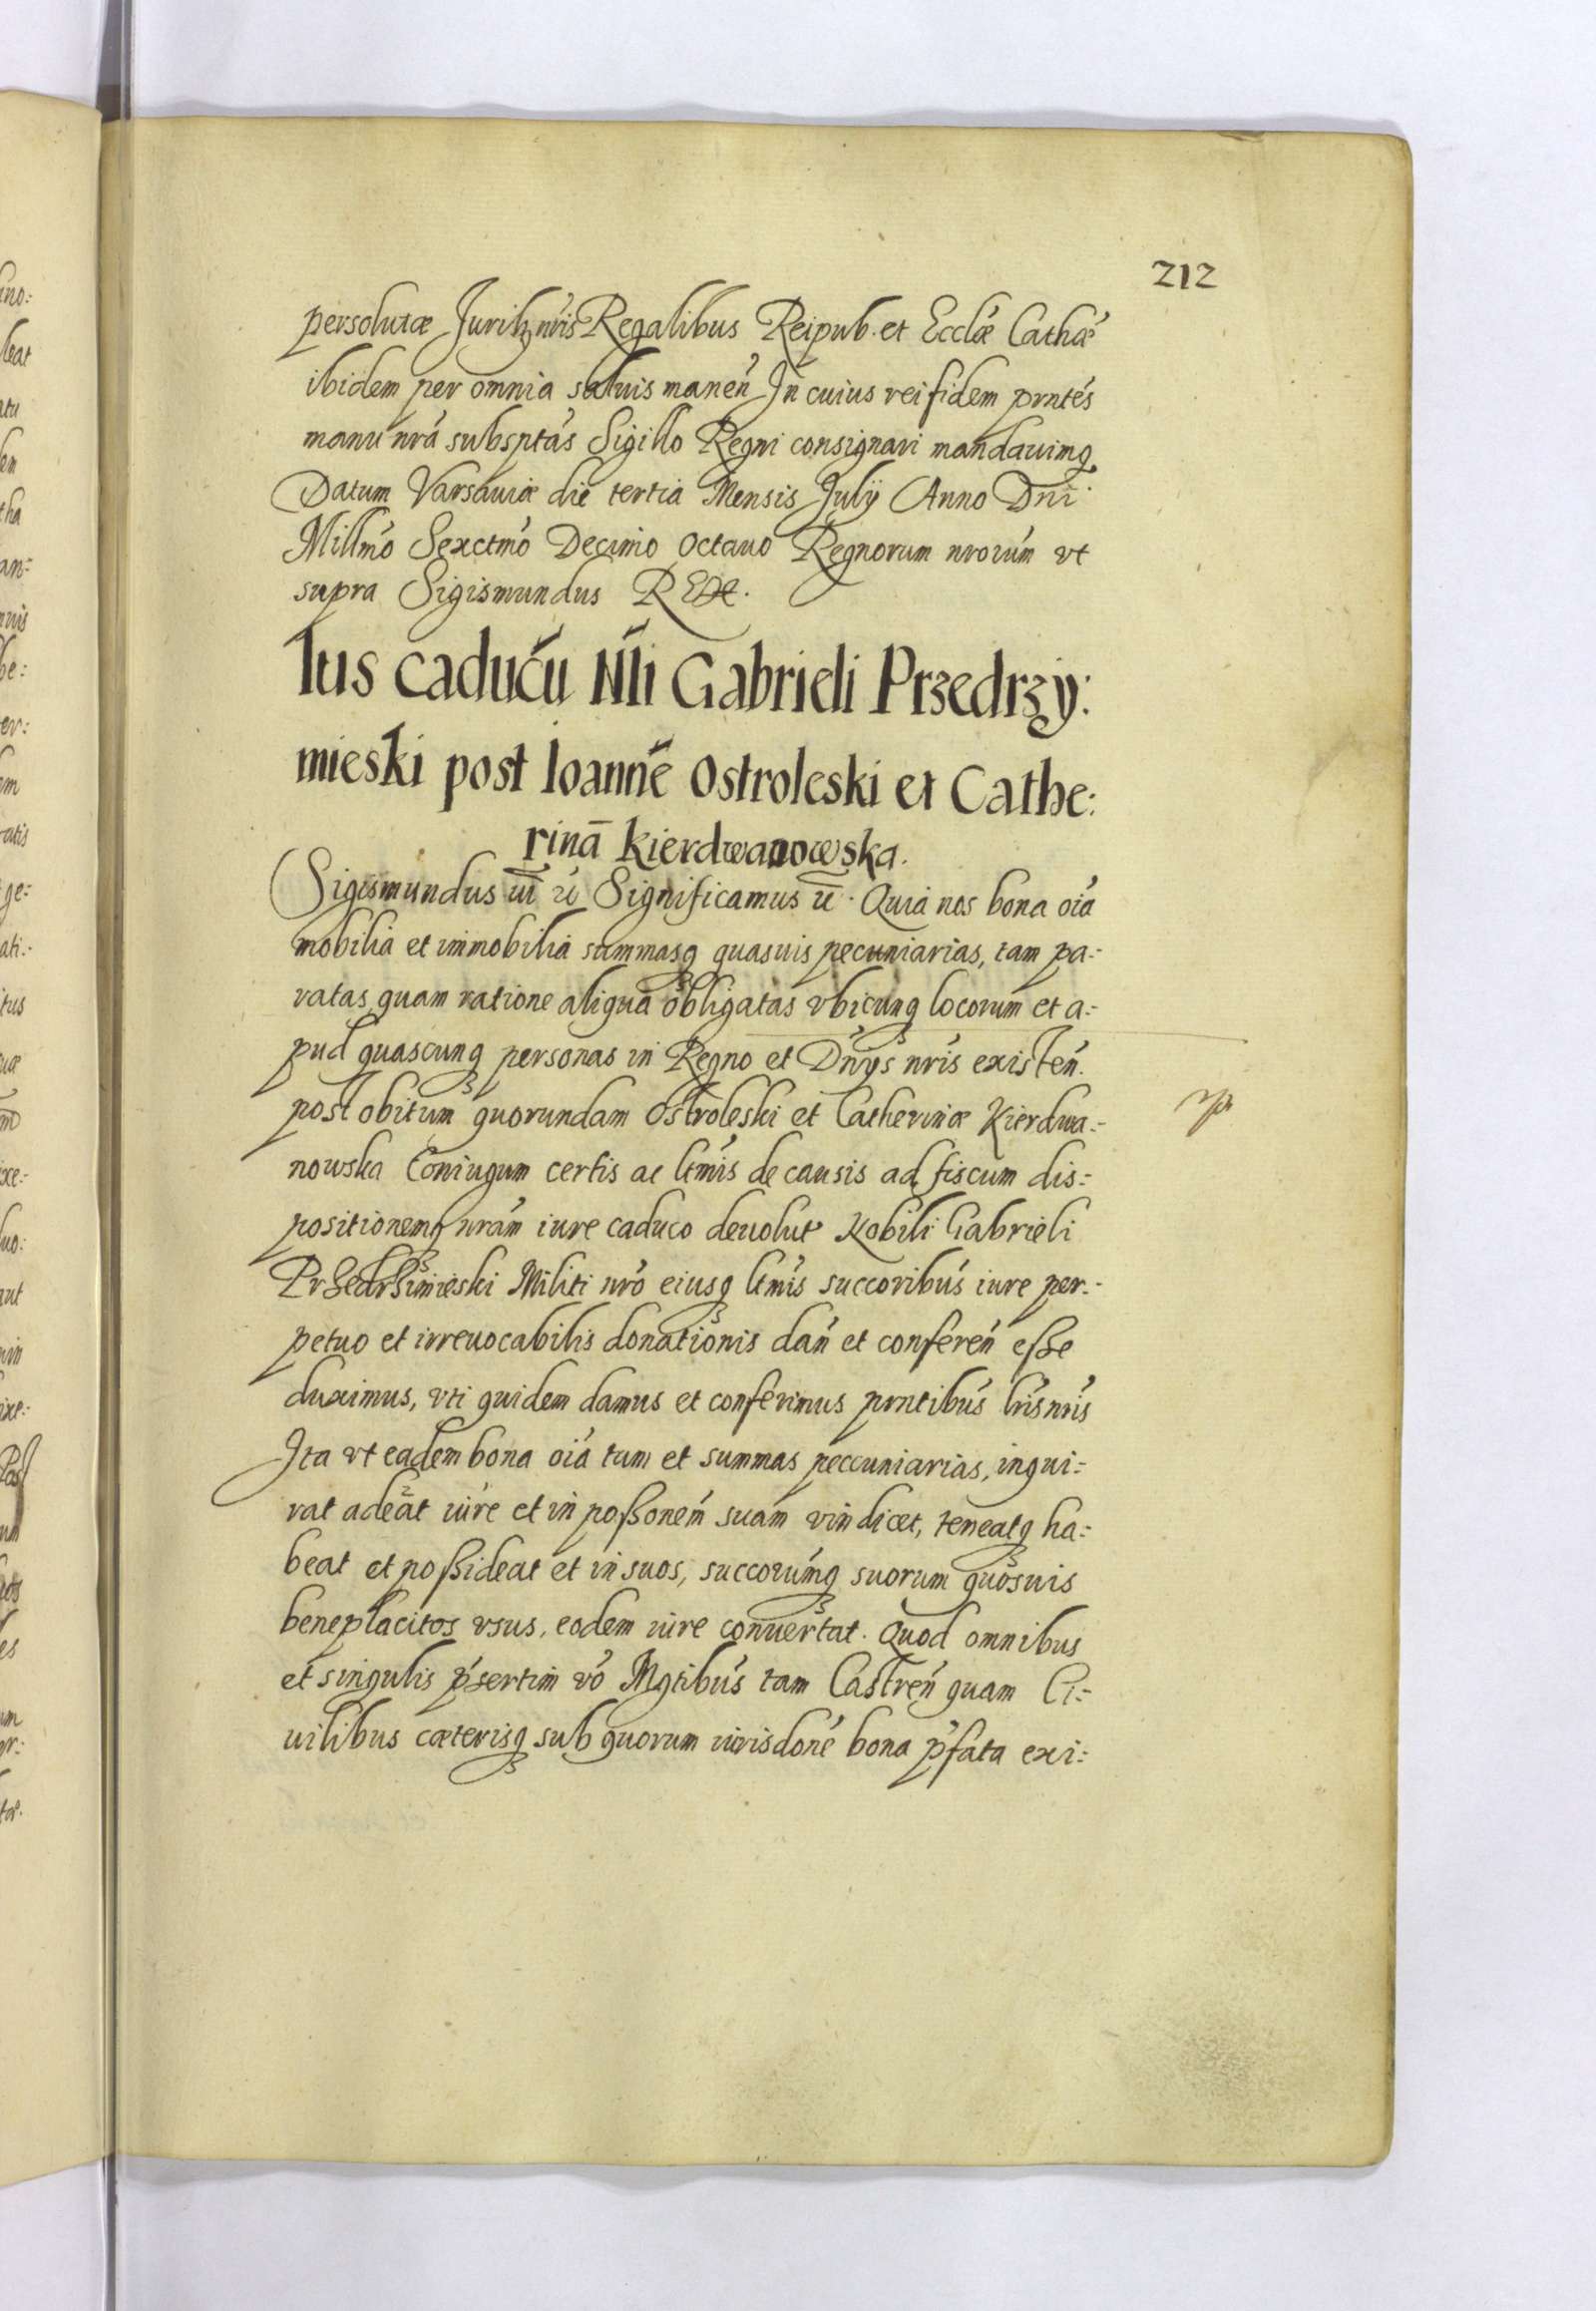 212
persolutæ Jurib₃ nris Regalibus Reipub. et Ecclæ Cathæ
ibidem per omnia saluis manen̍ In cuius rei fidem prntes
manu nra subsptas Sigillo Regni consignari mandauimq
Datum Varsauiæ die tertia Mensis Julÿ Anno Dni
Millmo Sexctmo Decimo octauo Regnorum nrorum vt
supra Sigismundus REX.
Ius caducu Nli Gabrieli Przedrzy:
mieski post Ioannē Ostroleski et Cathe:
rinā Kierdwanowska.
Sigismundus III Significamus. Quia nos bona oia
mobilia et immobilia summasq quasuis pecuniarias, tam pa:
ratas quam ratione aliqua obligatas vbicunq locorum et a:
pud quascunq personas in Regno et Dnÿs nris existen.
post obitum quorundam Ostroleski et Catherinæ Kierdwa:
nowska Coniugum certis ac ltmis de causis ad fiscum dis:
positionemq nram iure caduco deuolut Nobili Gabrieli
Przedrzimieski Militi nro eiusq ltmis succoribus iure per:
petuo et irreuocabilis donationis dan et conferen eſse
duximus, vti quidem damus et conferimus prntibus lris nris
Ita vt eadem bona oia tum et summas peccuniarias, inqui:
rat adeat iure et in poſsonem suam vindicet, teneatq ha:
beat et poſsideat et in suos, succorumq suorum quosuis
beneplacitos vsus, eodem iure conuertat. Quod omnibus
et singulis psertim vo Mgtibus tam Castren quam Ci:
uilibus cæterisq sub quorum iurisdone bona pfata exi: